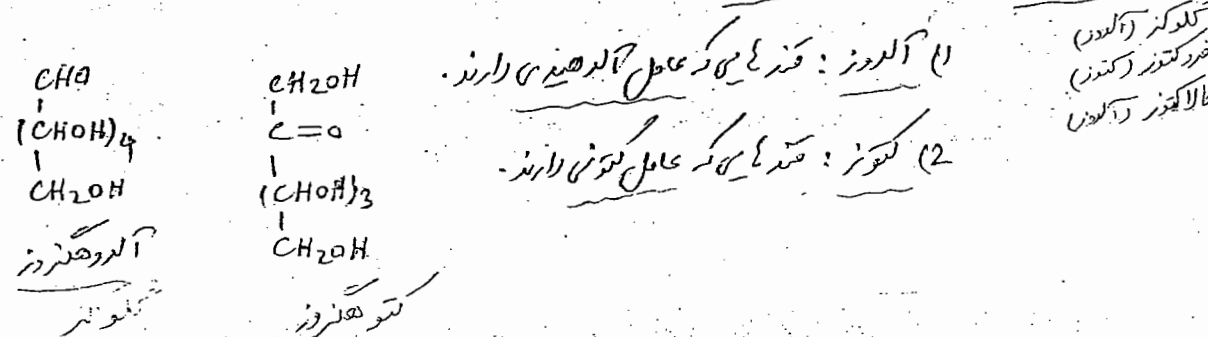 گلوکز (آلدوز)
فروکتوز (کتوز)
گالاکتوز (آلدوز)
1) آلدوز : قندهایی که عامل آلدهیدی دارند.
2) کتوز : قندهایی که عامل کتونی دارند.
CHO
(CHOH)4
CH2OH
آلدوهگزوز
گلوکز
CH2OH
C=O
(CHOH)3
CH2OH
کتوهگزوز